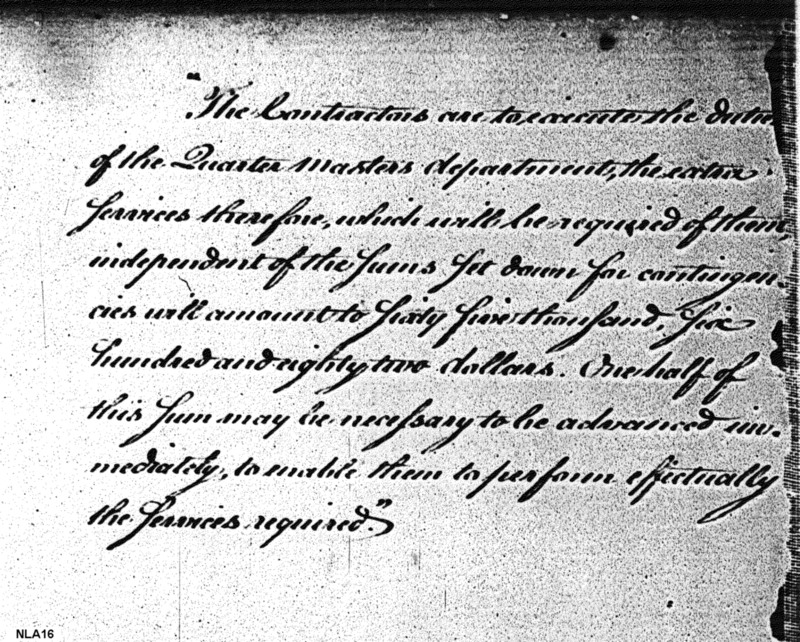 "The Contractors are to execute the duties
of the Quarter Masters department, the extra
Services therefore, which will be required of them,
independent of the Sums Set down for contingen-
cies will amount to Sixty five thousand, Six
hundred and eighty two dollars. One half of
this Sum may be necessary to be advanced im-
mediately, to enable them to perform effectually
the Services required."
NLA16